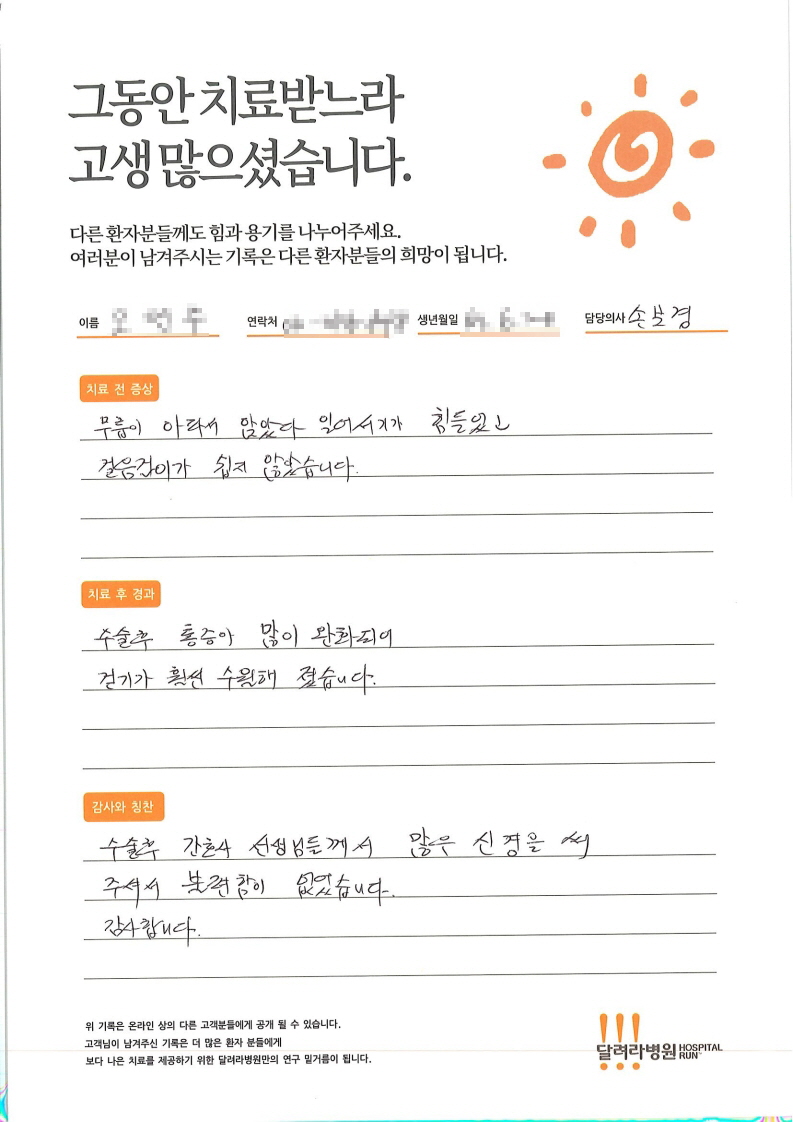 그동안 치료받느라
고생 많으셨습니다.
다른 환자분들께도 힘과 용기를 나누어주세요.
여러분이 남겨주시는 기록은 다른 환자분들의 희망이 됩니다.
이름 연락처 생년월일 담당의사 손보경
치료 전 증상
무릎이 아파서 앉았다 일어서기가 힘들었고
걸음걸이가 쉽지 않았습니다.
치료 후 경과
수술후 통증이 많이 완화되어
걷기가 훨씬 수월해 졌습니다.
감사와 칭찬
수술후 간호사 선생님들께서 많은 신경을 써
주셔서 불편함이 없었습니다.
감사합니다.
위 기록은 온라인 상의 다른 고객분들에게 공개 될 수 있습니다.
고객님이 남겨주신 기록은 더 많은 환자 분들에게
보다 나은 치료를 제공하기 위한 달려라병원만의 연구 밑거름이 됩니다.
달려라병원 HOSPITAL RUN